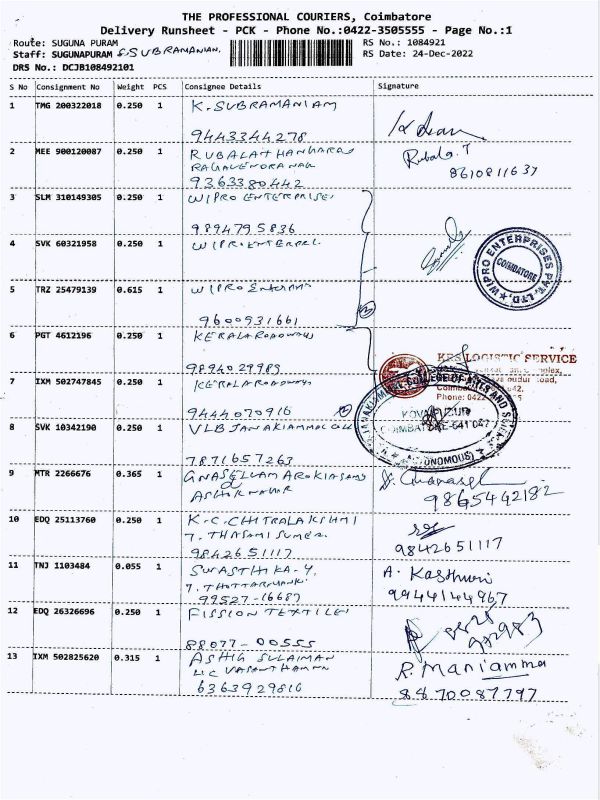 THE PROFESSIONAL COURIERS, Coimbatore
Delivery Runsheet - PCK - Phone No.:0422-3505555 - Page No.:1
Route: SUGUNA PURAM
RS No.: 1084921
Staff: SUGUNAPURAM S. SUBRAMANIAN.
RS Date: 24-Dec-2022
DRS No.: DCJB108492101
S No Consignment No Weight PCS Consignee Details Signature
1 TMG 200322018 0.250 1 K. SUBRAMANIAM
9443344278
2 MEE 900120087 0.250 1 RUBALATHANGARAJ Rubala.T
RAGAVENDRA NAR 8610811637
9363380442
3 SLM 310149305 0.250 1 WIPRO ENTERPRISES
9894795836
4 SVK 60321958 0.250 1
WIPRO ENTERPRISES PVT. LTD.
COIMBATORE
5 TRZ 25479139 0.615 1 WIPRO
9600931661
6 PGT 4612196 0.250 1 KERALA ROADWAYS
KRS LOGISTIC SERVICE
9894029983
7 IXM 502747845 0.250 1 KERALA ROADWAYS
9444070916
JANAKIAMMAL COLLEGE OF ARTS AND
KOVAIPUDUR
COIMBATORE-641 042
(AUTONOMOUS)
8 SVK 10342190 0.250 1 VLB JANAKIAMMAL COLL
7871657263
9 MTR 2266676 0.365 1 GNASELLAM AROKIASAMY
ASHOK NAGAR 9865442182
10 EDQ 25113760 0.250 1 K.C. CHITRALAKSHMI
9842651117 9842651117
11 TNJ 1103484 0.055 1 SWASTHIKA-Y, A. Kasthuri
99527-16687 9944144967
12 EDQ 26326696 0.250 1 FISSION TEXTILES
88077-00555
13 IXM 502825620 0.315 1 ASHIG SULAIMAN R. Maniamma
LIC VASANTHAM
6363929816 8870087797